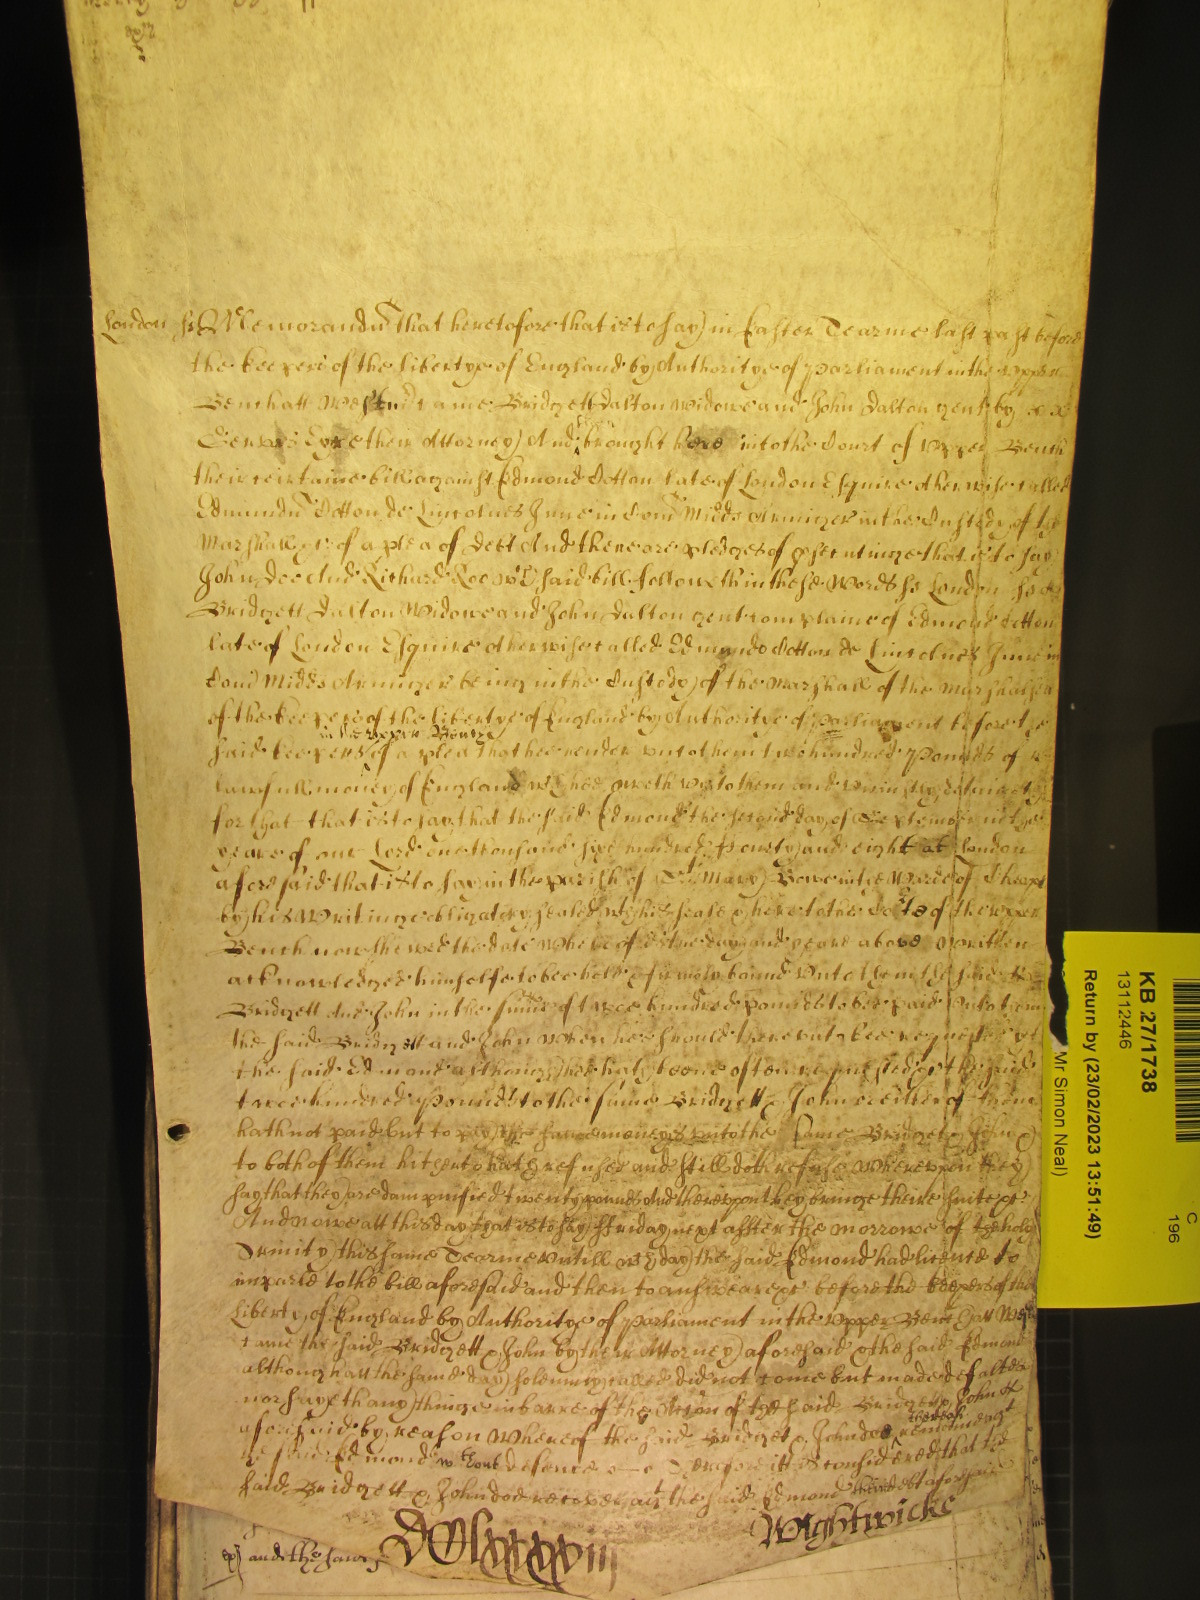 London ss Memorandu that heretofore that is to say in Easter Tearme last past before
the keepers of the libertye of England by Authoritye of Parliament in the Upper
Bench att Westm came Bridgett Dalton Widowe and John Dalton gent by
Eyre their Attorney And brought here into the Court of Upper Bench
their certaine bill against Edmond Cotton late of London Esquire otherwise called
Edmundu Cotton de Lincolnes Inne in Com Midds Armiger in the Custody of the
Marshall &c of a plea of debt And there are pledges of prosecutinge that is to say
John Doe And Richard Roe wch said bill followeth in these words ss London ss
Bridgett Dalton Widowe and John Dalton gent complaine of Edmond Cotton
late of London Esquire otherwise called Edmundo Cotton de Lincolnes Inne in
Com Midds Armiger being in the Custody of the Marshall of the Marshalsea
of the keepers of the libertye of England by Authoritye of Parliament before the
in the upper Bench
said keepers of a plea that hee render unto them two hundred Pounds of
lawfull money of England wch hee oweth unto them and uniustly detaineth
for that that is to say that the said Edmond the second day of September in the
yeare of our Lord one thousand six hundred fourty and eight at London
aforesaid that is to say in the parish of St Mary Bowe in the Warde of Cheape
by his Writinge obligatory sealed wth his seale & here to the Co of the upper
Bench now shewed the date whereof is the day and yeare above written
acknowledged himselfe to bee held & firmely bound unto them the said
Bridgett And John in the summe of twoe hundred pounds to bee paid unto them
the said Bridgett and John when hee should thereunto bee requested yet
the said Edmond although hee hath beene often requested &c the said
twoe hundred Pounds to the same Bridgett & John or either of them
hath not paid but to pay the same moneys unto the same Bridgett & John &
to both of them hitherto hath refused and still doth refuse Whereuppon they
say that they are dampnified twenty pounds And thereuppon they bringe theire suite &c
And nowe att this day that is to say Friday next affter the morrowe of the holy
Trinity this same Tearme untill wch day the said Edmond had licence to
imparle to the bill aforesaid and then to answeare &c before the keepers of the
Liberty of England by Authoritye of Parliament in the Upper Bench att West
came the said Bridgett & John by their Attorney aforesaid & the said Edmond
although att the same day solemnly called did not come but made defalte
nor sayeth any thinge in barre of the Accon of the said Bridgett & John
thereof
aforesaid by reason whereof the said Bridgett & John doe remaine agt
the said Edmond wthout defence &c Therefore itt is considered that the
said Bridgett & John doe recover agt the said Edmond their debt aforesaid
and the
DClxxxxviii
Wightwicke
KB 27/1738
13112446
Return by (23/02/2023 13:51:49)
Mr Simon Neal)
C
196